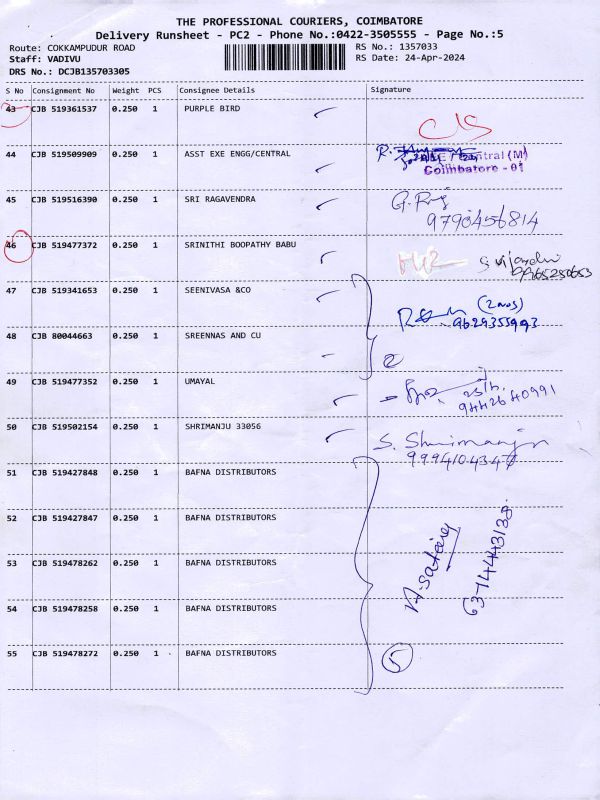 THE PROFESSIONAL COURIERS, COIMBATORE
Delivery Runsheet - PC2 - Phone No.:0422-3505555 - Page No.:5
Route: COKKAMPUDUR ROAD RS No.: 1357033
Staff: VADIVU RS Date: 24-Apr-2024
DRS No.: DCJB135703305
S No Consignment No Weight PCS Consignee Details Signature
43 CJB 519361537 0.250 1 PURPLE BIRD
44 CJB 519509909 0.250 1 ASST EXE ENGG/CENTRAL
Central (M)
Coimbatore - 01
45 CJB 519516390 0.250 1 SRI RAGAVENDRA
9790456814
46 CJB 519477372 0.250 1 SRINITHI BOOPATHY BABU
47 CJB 519341653 0.250 1 SEENIVASA &CO
(2nos)
9629355993
48 CJB 80044663 0.250 1 SREENNAS AND CU
2
49 CJB 519477352 0.250 1 UMAYAL
9442640991
50 CJB 519502154 0.250 1 SHRIMANJU 33056
S. Shrimanju
51 CJB 519427848 0.250 1 BAFNA DISTRIBUTORS
52 CJB 519427847 0.250 1 BAFNA DISTRIBUTORS
53 CJB 519478262 0.250 1 BAFNA DISTRIBUTORS
54 CJB 519478258 0.250 1 BAFNA DISTRIBUTORS
55 CJB 519478272 0.250 1 BAFNA DISTRIBUTORS
5